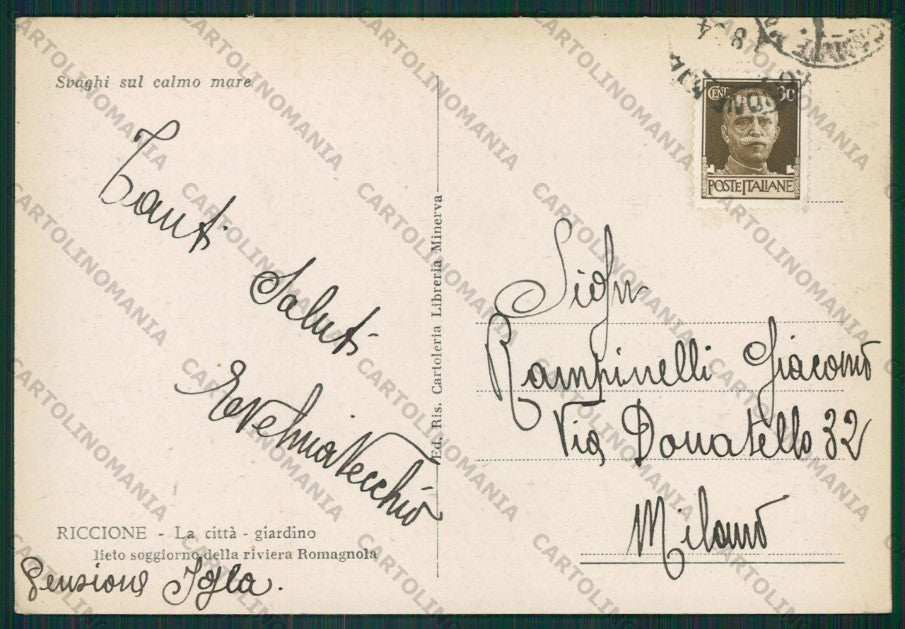 Svaghi sul calmo mare
Tanti
Saluti
Vecchio
RICCIONE - La città - giardino
lieto soggiorno della riviera Romagnola
Pensione Igla.
Ed. Ris. Cartoleria Libreria Minerva
CENT. 30
POSTE ITALIANE
Sigr
Rampinelli Giacomo
Via Donatello 32
Milano
CARTOLINOMANIA